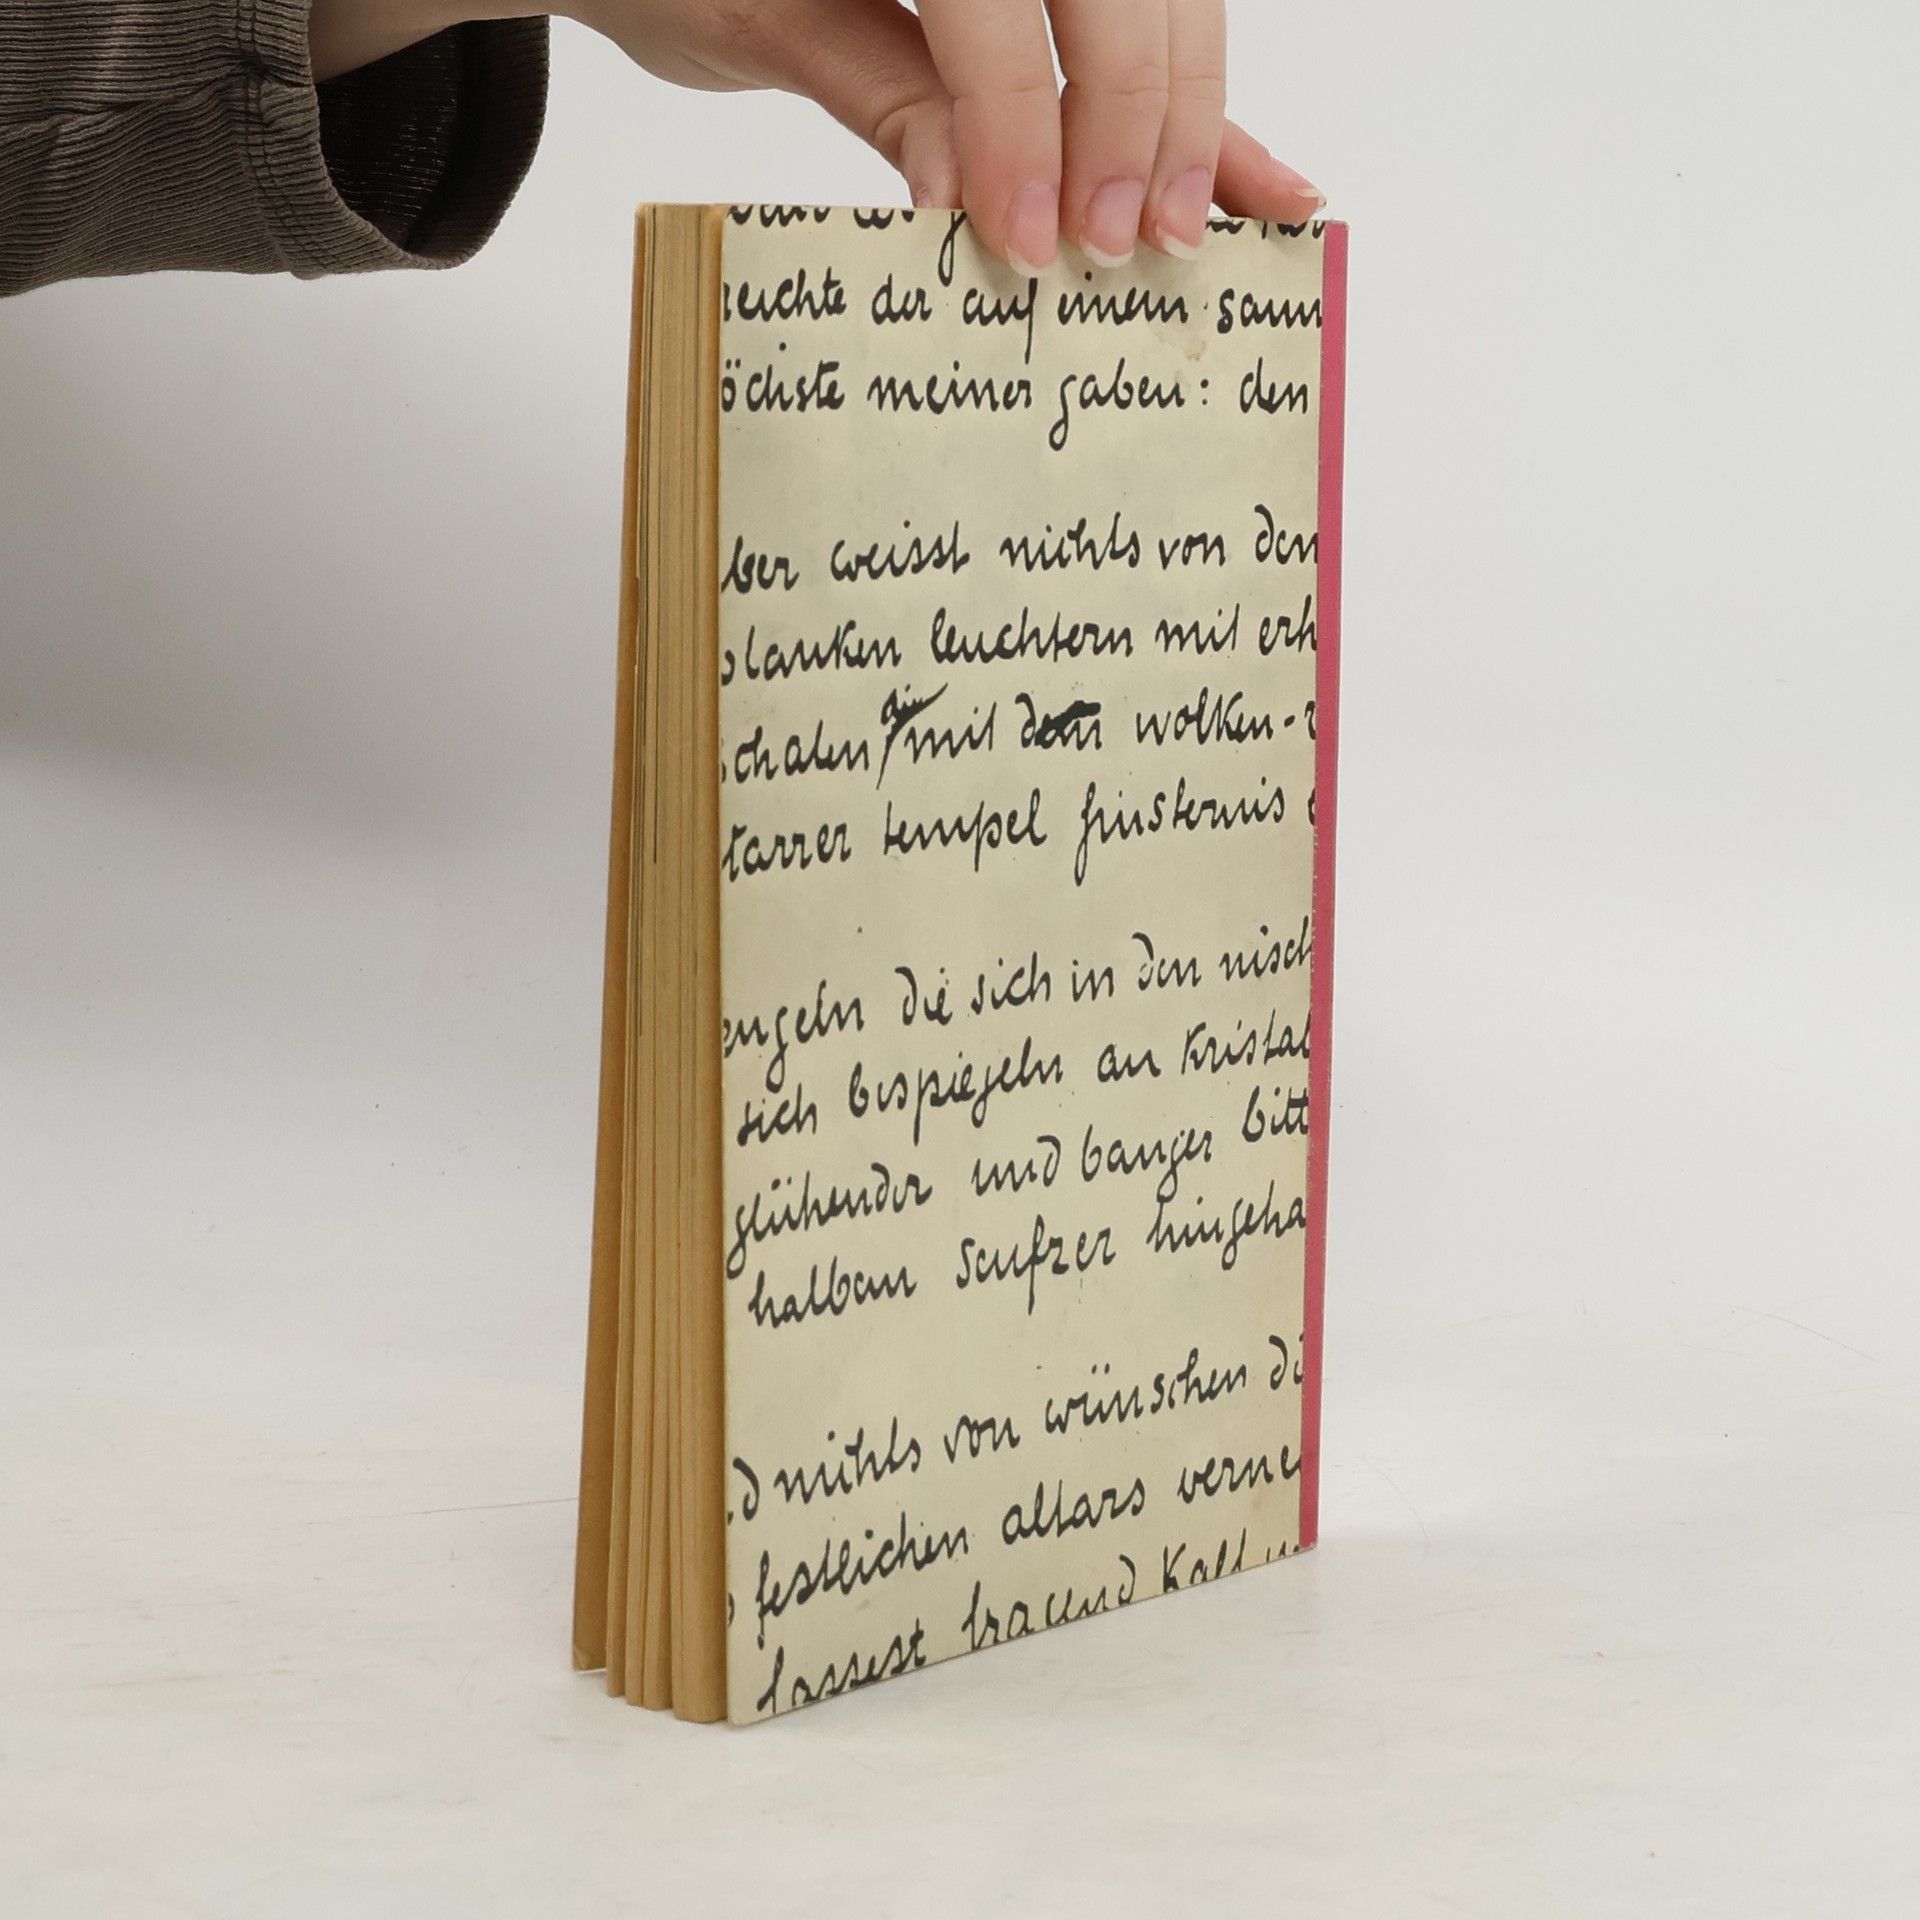 reichte der auf einem sam
öchste meiner gaben: den
ber weisst nichts von den
blanken leuchtern mit erh
schalen die mit den wolken-
tarrer tempel finsternis
engeln die sich in den nisch
sich bespiegeln an Kristal
glühender und banger bitt
halben Seufzer hingeha
d nichts von wünschen di
festlichen altars verne
lassest frauend Kalt